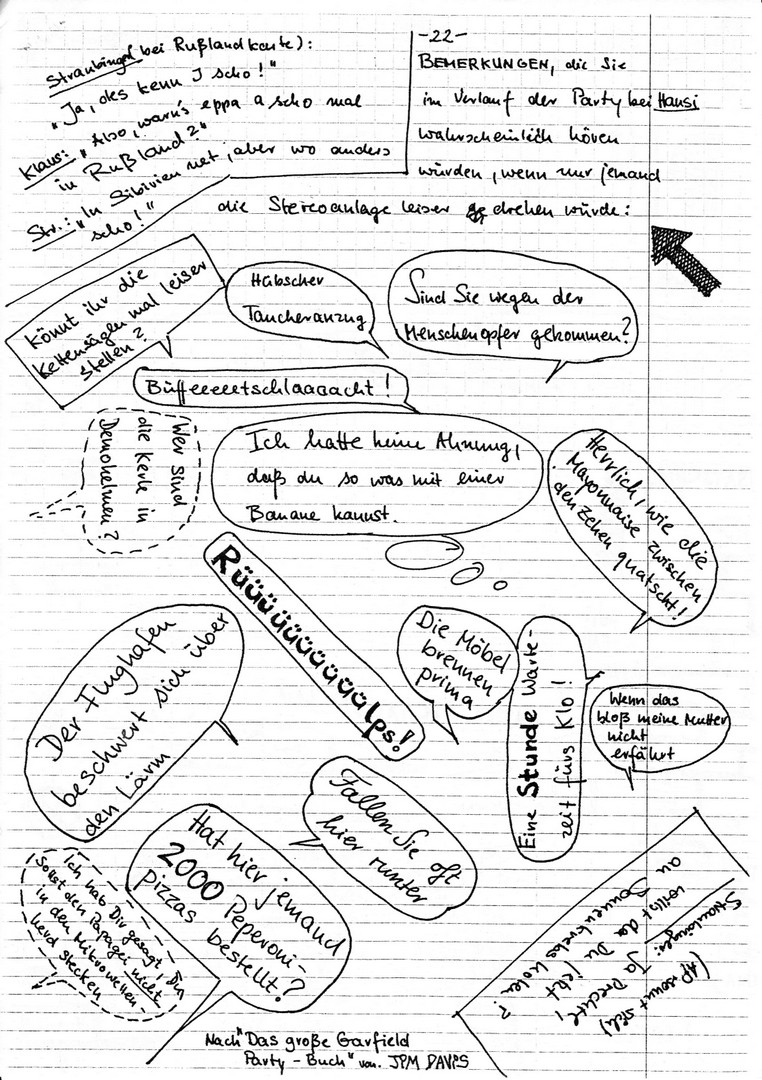 Straubinger bei Rußlandkarte):
"Ja, des kenn I scho!"
Klaus: "Also, warn's eppa a scho mal
in Rußland?"
Str.: "In Sibirien net, aber wo anders
scho!"
-22-
BEMERKUNGEN, die Sie
im Verlauf der Party bei Hansi
wahrscheinlich hören
würden, wenn nur jemand
die Stereoanlage leiser drehen würde:
Könnt ihr die
Kettensägen mal leiser
stellen?
Hübscher
Taucheranzug
Sind Sie wegen der
Menschenopfer gekommen?
Büffeeeeetschlaaaacht!
Wer sind
die Kerle in
Demohelmen?
Ich hatte keine Ahnung,
daß du so was mit einer
Banane kannst.
Herrlich, wie die
Mayonnaise zwischen
den Zehen quatscht!
Rüüüüüüüüüülps!
Die Möbel
brennen
prima
Eine Stunde Warte-
zeit fürs Klo!
Wenn das
bloß meine Mutter
nicht
erfährt
Der Flughafen
beschwert sich über
den Lärm
Fallen Sie oft
hier runter
Hat hier jemand
2000 Peperoni-
pizzas bestellt?
Ich hab Dir gesagt, Du
sollst den Papagei nicht
in den Mikrowellen-
herd stecken
(AP sonnt sich)
Straubinger: Ja Prechtl,
willst da Du jetzt
an Sonnenkrebs holen?
Nach "Das große Garfield
Party-Buch" von JIM DAVIS